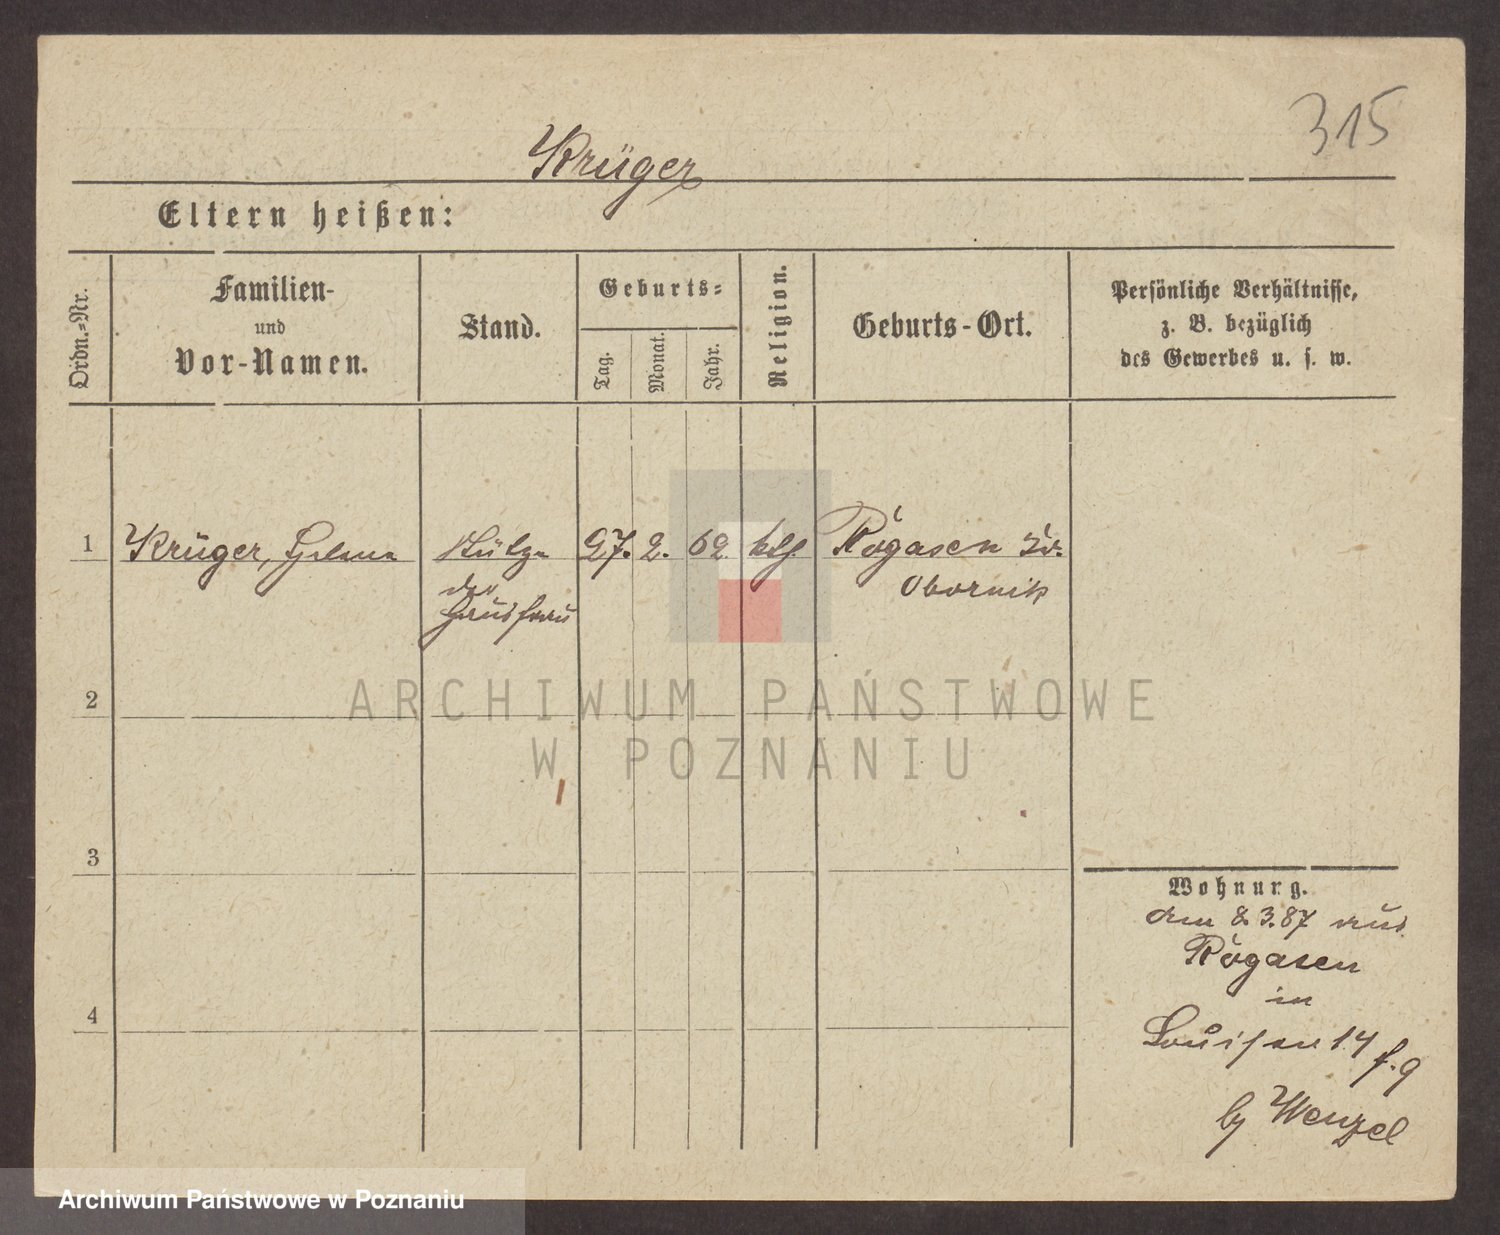 315
Krüger
Eltern heißen:
Ordn.=Nr.
Familien-
und
Vor-Namen.
Stand.
Geburts=
Tag.
Monat.
Jahr.
Religion.
Geburts-Ort.
Persönliche Verhältnisse,
z. B. bezüglich
des Gewerbes u. s. w.
1
Krüger,
Stütze
der
Hausfrau
27. 2. 62
ktg
Rogasen Kr.
Obornik
2
3
4
ARCHIWUM PAŃSTWOWE
W POZNANIU
Wohnung.
am 8.3.87 aus
Rogasen
in
Louisen 14
by Wenzel
Archiwum Państwowe w Poznaniu